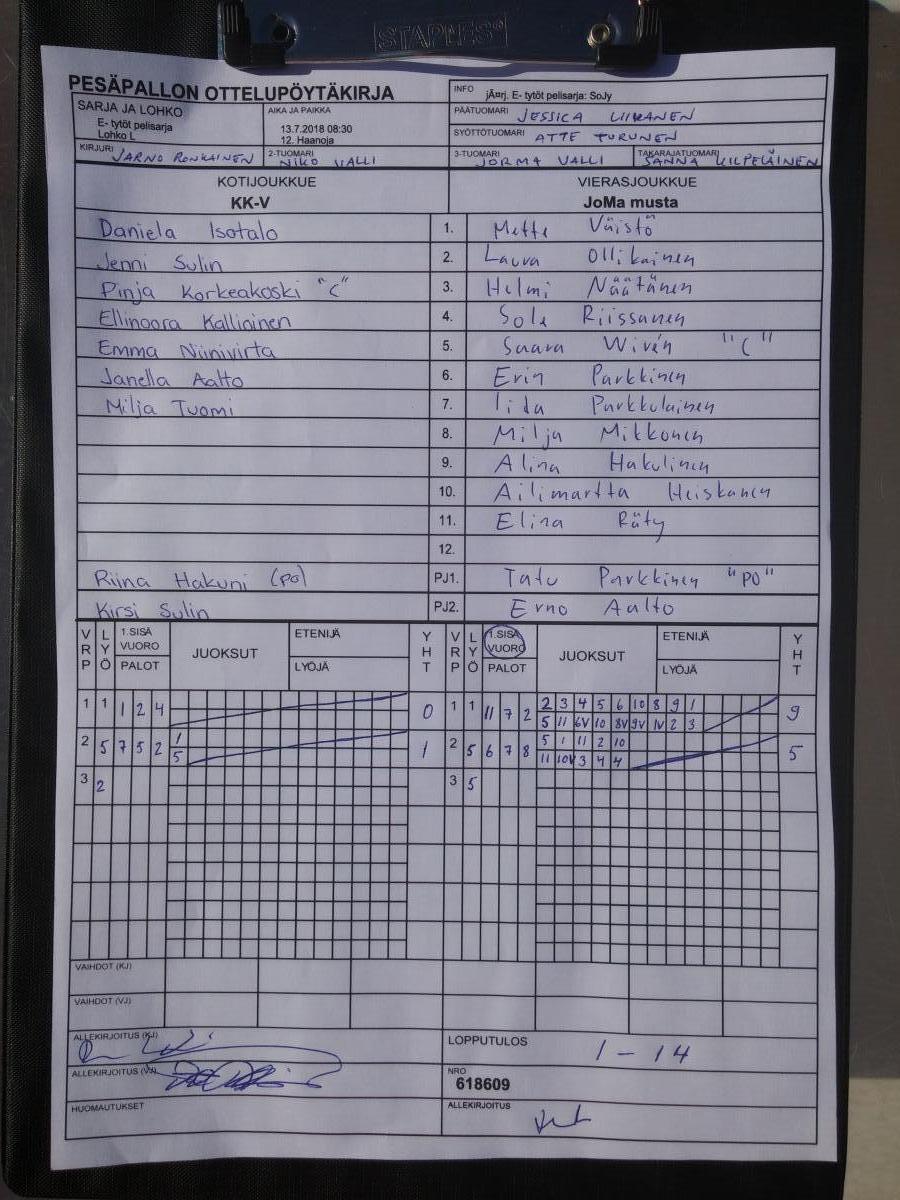 STAPLES
PESÄPALLON OTTELUPÖYTÄKIRJA
INFO jÃ¤rj. E- tytöt pelisarja: SoJy
SARJA JA LOHKO
E- tytöt pelisarja
Lohko L
AIKA JA PAIKKA
13.7.2018 08:30
12. Haanoja
PÄÄTUOMARI JESSICA LIIKANEN
SYÖTTÖTUOMARI ATTE TURUNEN
KIRJURI JARNO RONKAINEN
2-TUOMARI NIKO VALLI
3-TUOMARI JORMA VALLI
TAKARAJATUOMARI SANNA KILPELÄINEN
KOTIJOUKKUE VIERASJOUKKUE
KK-V JoMa musta
Daniela Isotalo 1. Mette Väistö
Jenni Sulin 2. Laura Ollikainen
Pinja Korkeakoski "C" 3. Helmi Näätänen
Ellinoora Kallioinen 4. Sole Riissanen
Emma Niinivirta 5. Saara Wirén "C"
Janella Aalto 6. Erin Parkkinen
Milja Tuomi 7. Iida Parkkulainen
8. Milja Mikkonen
9. Alina Hakulinen
10. Ailimartta Heiskanen
11. Elina Räty
12.
Riina Hakuni (po) PJ1. Tatu Parkkinen "PO"
Kirsi Sulin PJ2. Erno Aalto
VRP LYÖ 1.SISÄ VUORO PALOT JUOKSUT ETENIJÄ LYÖJÄ YHT VRP LYÖ 1.SISÄ VUORO PALOT JUOKSUT ETENIJÄ LYÖJÄ YHT
1 1 1 2 4 0 1 1 11 7 2 2 3 4 5 6 10 8 9 1 9
5 11 6V 10 8V 9V 1V 2 3
2 5 7 5 2 1 1 2 5 6 7 8 5 1 11 2 10 5
5 11 10V 3 4 4
3 2 3 5
VAIHDOT (KJ)
VAIHDOT (VJ)
ALLEKIRJOITUS (KJ)
LOPPUTULOS 1 - 14
ALLEKIRJOITUS (VJ)
NRO
618609
HUOMAUTUKSET
ALLEKIRJOITUS